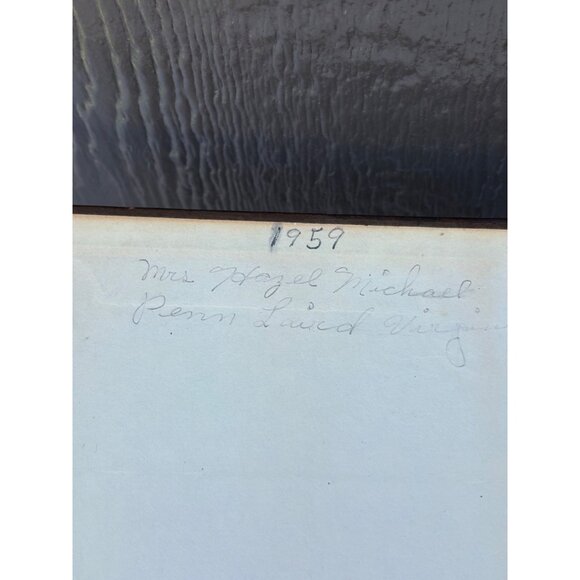 1959
Mrs Hazel Michael
Penn Laird Virgin